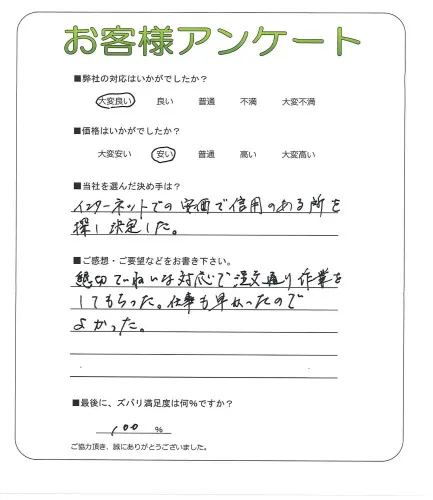 お客様アンケート
■弊社の対応はいかがでしたか？
大変良い 良い 普通 不満 大変不満
■価格はいかがでしたか？
大変安い 安い 普通 高い 大変高い
■当社を選んだ決め手は？
インターネットでの安価で信用のある所を
探し決定した。
■ご感想・ご要望などをお書き下さい。
懇切ていねいな対応で注文通り作業を
してもらった。仕事も早かったので
よかった。
■最後に、ズバリ満足度は何％ですか？
100 ％
ご協力頂き、誠にありがとうございました。